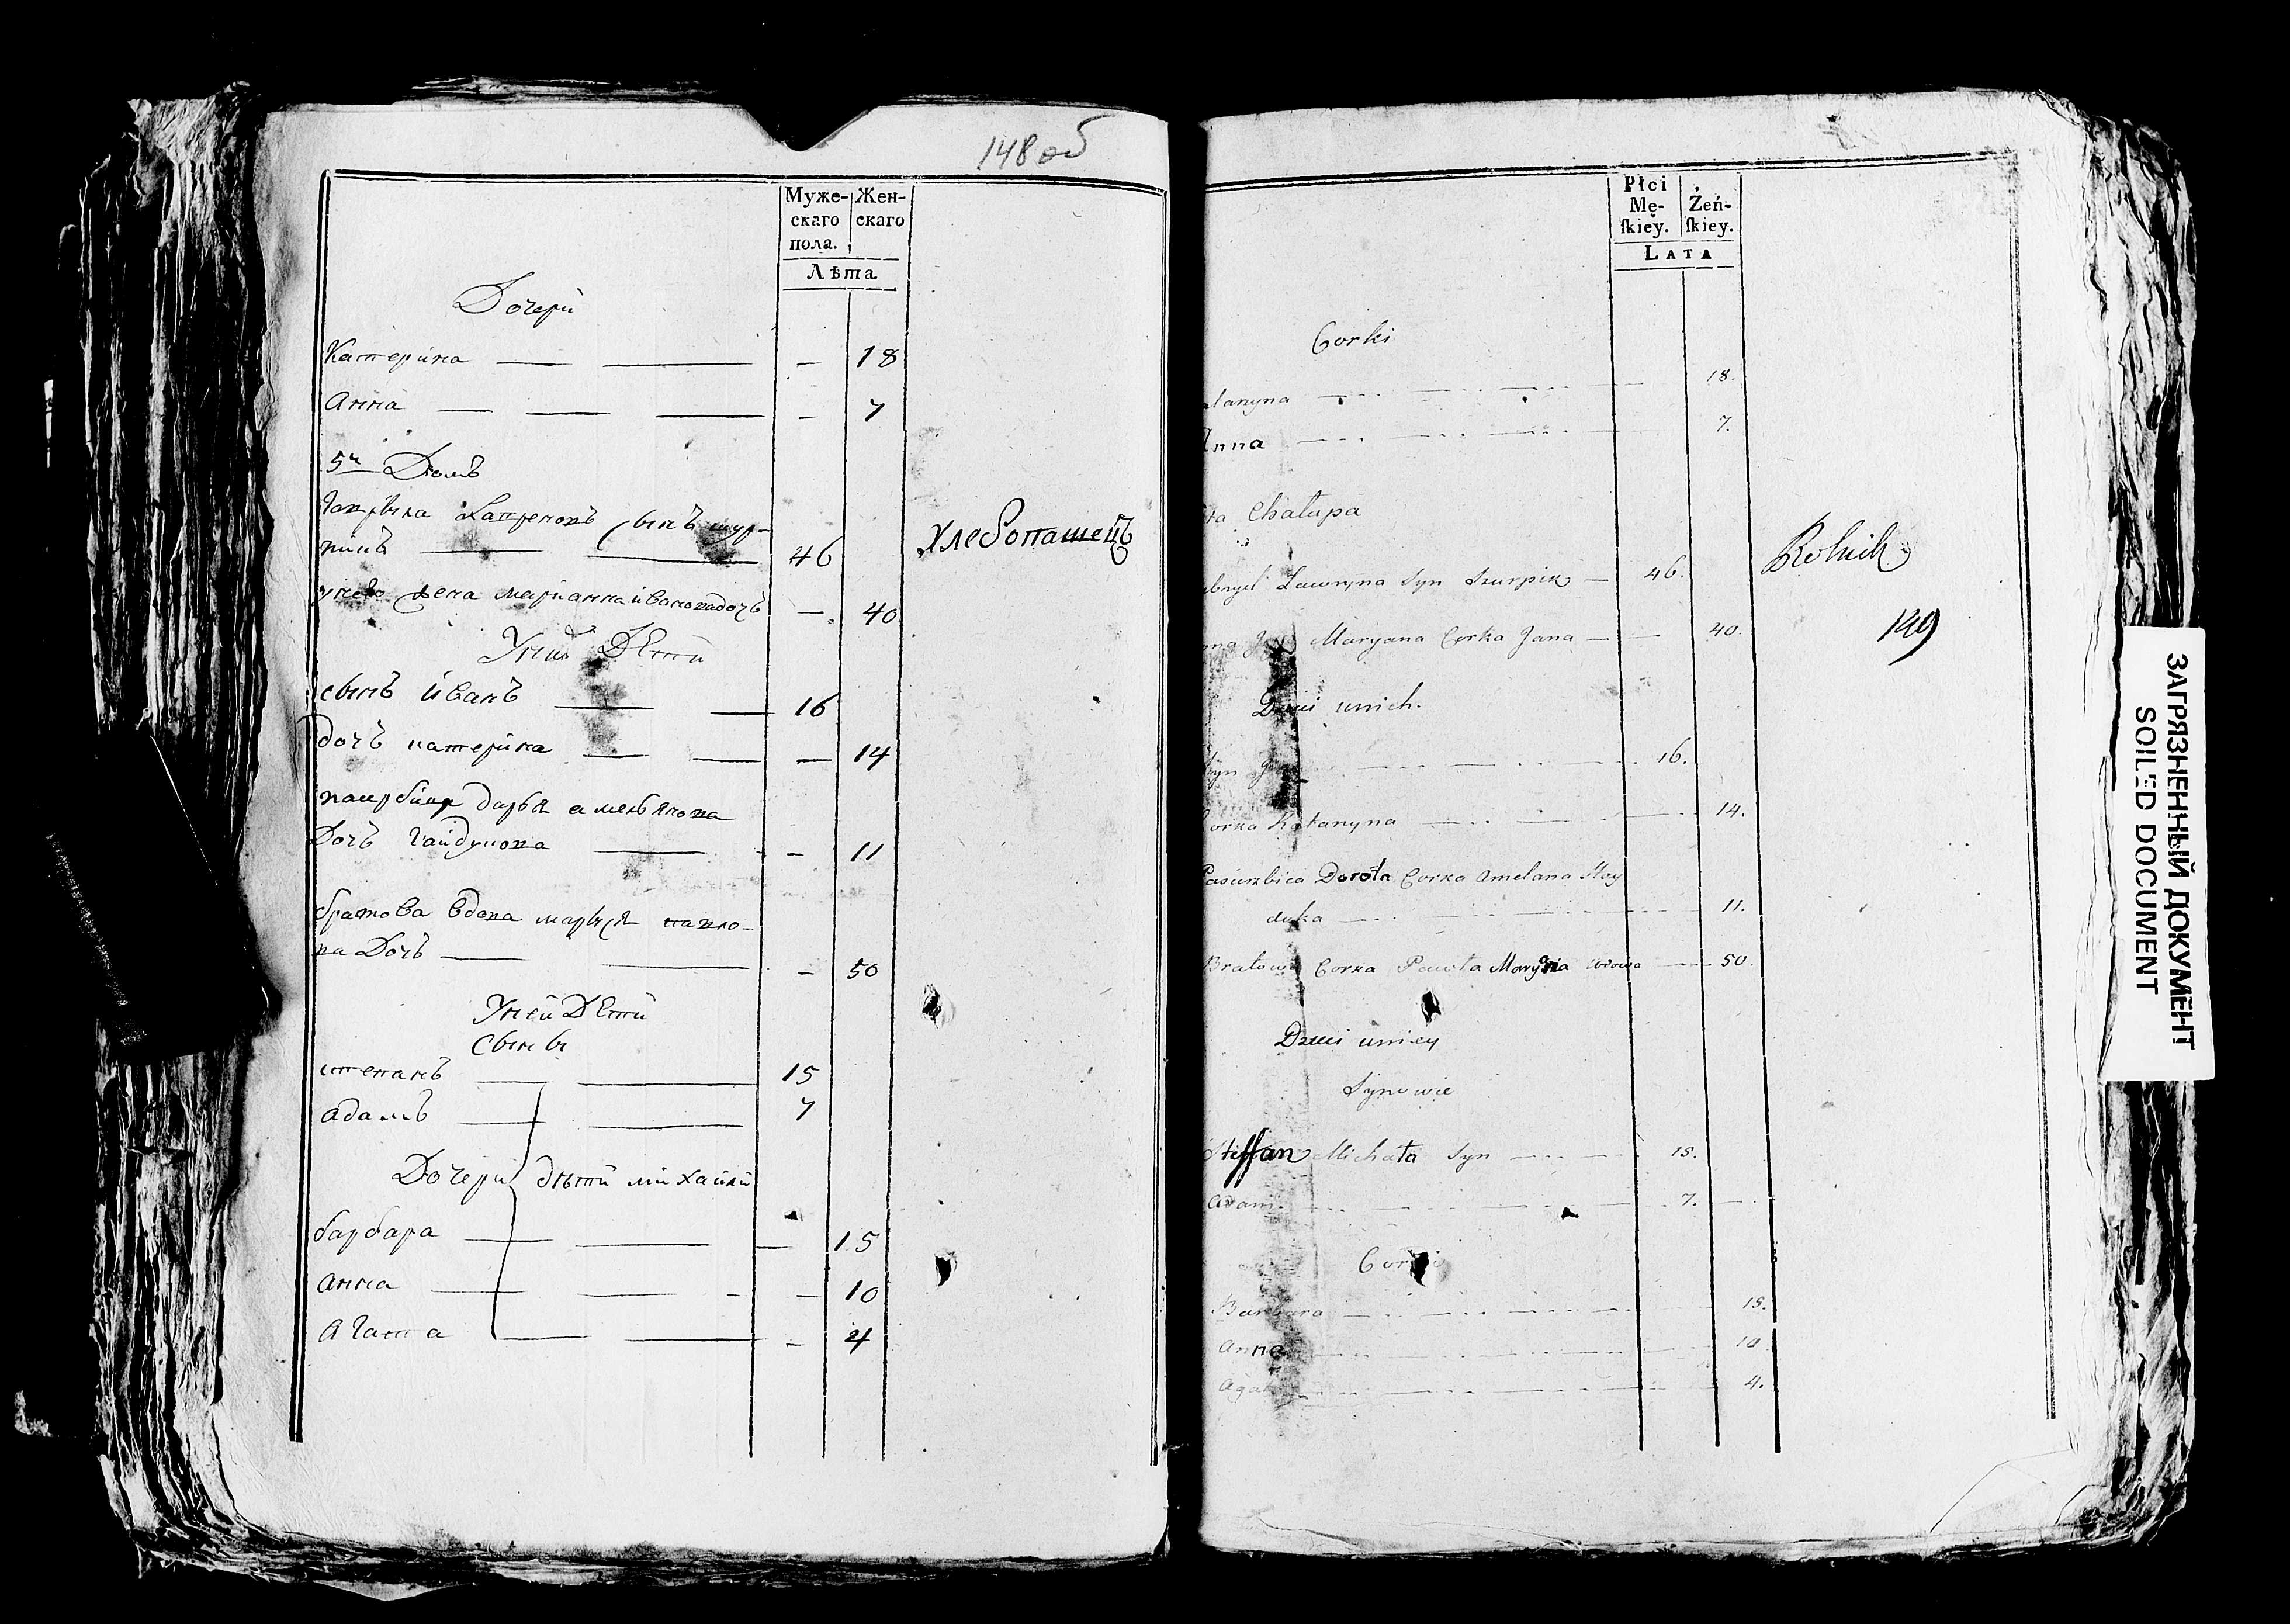 148 об
Муже- Жен-
скаго скаго
пола.
Лѣта
Дочери
Катерина — — — 18
Анна — — — — 7
5й Домъ
Гаврыла Лавреновъ сынъ шур-
пикъ — — 46 Хлебопашецъ
унево жена марианна иванова дочъ — 40
Уних Дети
сынъ иванъ — — 16
дочъ катерина — — — 14
пасербица дарья амельянова
Дочъ гайдукова — — 11
братова вдова марыся павло-
ва Дочъ — — — 50
Уней Дети
сыны
степанъ — — 15
адамъ — — 7
Дочери дѣти михайлы
барбара — — — 15
анна — — — — 10
агата — — — 4
Płci Żeń-
Mę- skiey.
skiey.
Lata
Corki
atarzyna — — — 18.
Anna — — — 7.
ta Chałupa
abryel Ławryna Syn Szurpik — 46. Rolnik
149
Maryana Corka Jana — — 40.
Dzieci unich.
Syn — — — 16.
Corka Katarzyna — — — 14.
Pasierzbica Dorota Corka Amelana Hay
duka — — — 11.
Bratowa Corka Pawła Marysia wdowa — 50.
Dzieci uniey
Synowie
Steffan Michała Syn — — 15.
Adam — — — 7. —
Corki
Barbara — — — 15.
Anna — — — 10
Agata — — — 4.
ЗАГРЯЗНЕННЫЙ ДОКУМЕНТ
SOILED DOCUMENT